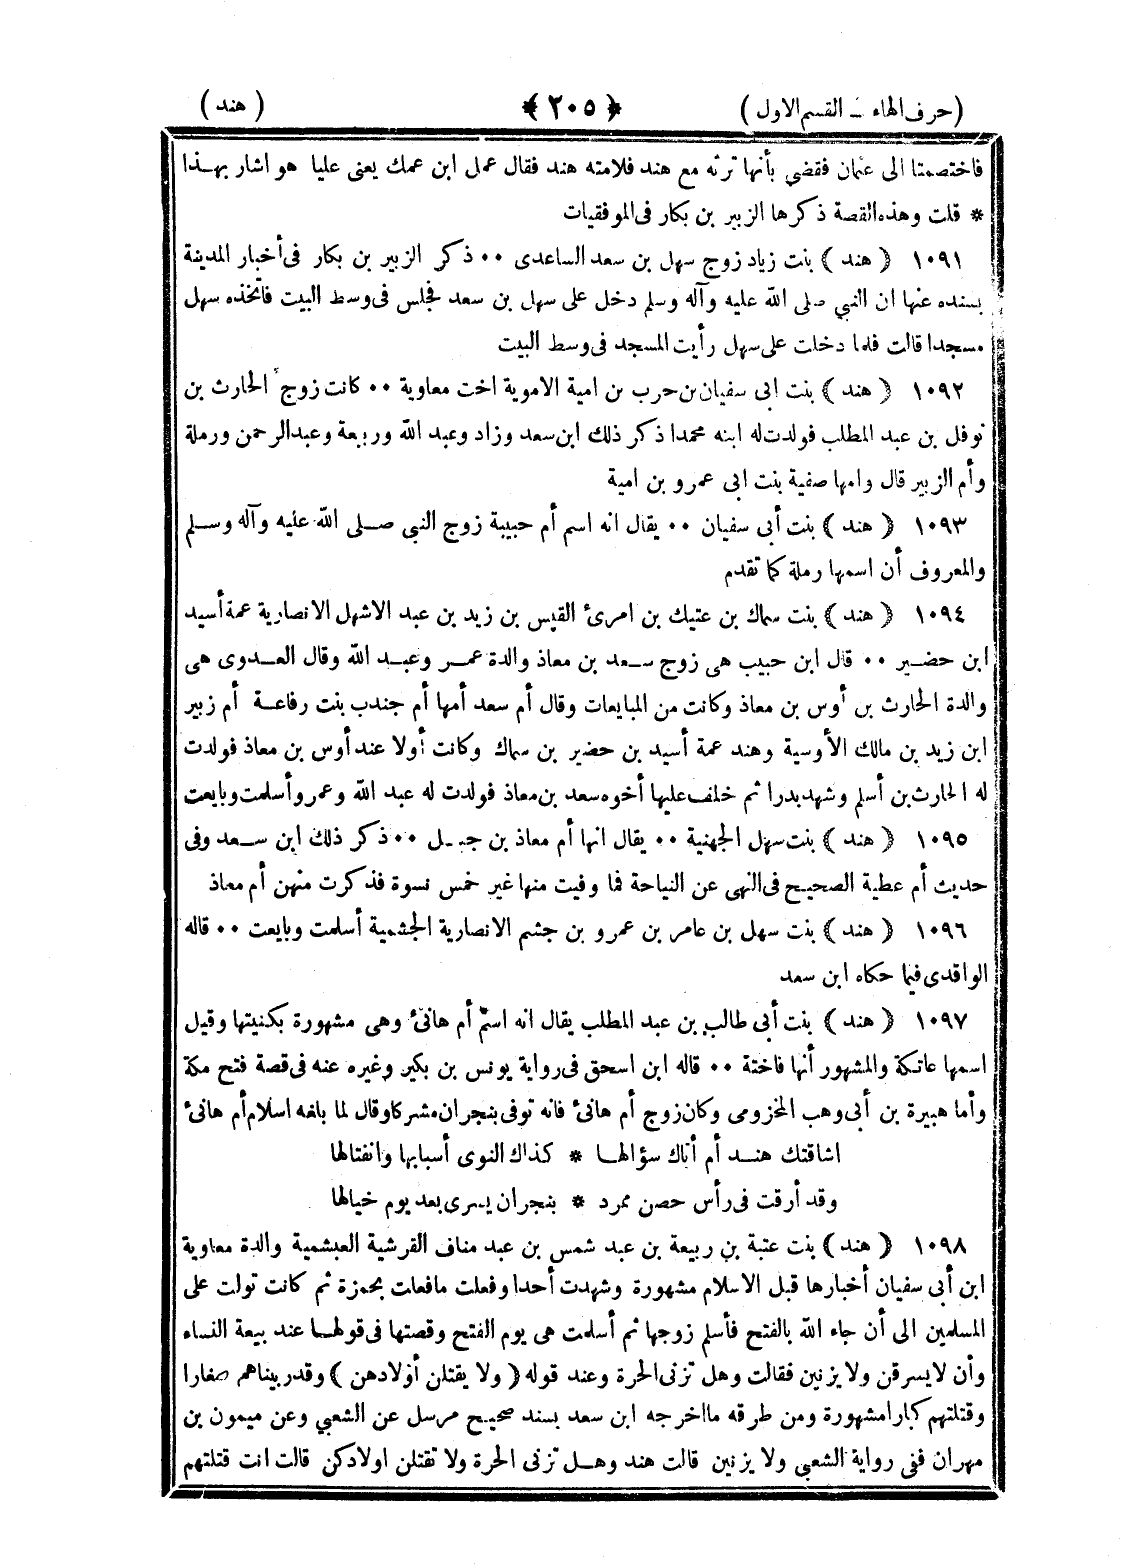 (حرف الهاء ـ القسم الاول) ﴿٢٠٥﴾ (هند)
فاختصمتا الى عثمان فقضي بأنها ترثه مع هند فلامته هند فقال عمل ابن عمك يعنى عليا هو اشار بهذا
* قلت وهذه القصة ذكرها الزبير بن بكار فى الموفقيات
١٠٩١ ﴿هند﴾ بنت زياد زوج سهل بن سعد الساعدى ٠٠ ذكر الزبير بن بكار فى أخبار المدينة
بسنده عنها ان النبي صلى الله عليه وآله وسلم دخل على سهل بن سعد فجلس فى وسط البيت فاتخذه سهل
مسجدا قالت فلما دخلت على سهل رأيت المسجد فى وسط البيت
١٠٩٢ ﴿هند﴾ بنت ابى سفيان بن حرب بن امية الاموية اخت معاوية ٠٠ كانت زوج الحارث بن
نوفل بن عبد المطلب فولدت له ابنه محمدا ذكر ذلك ابن سعد وزاد وعبد الله وربيعة وعبدالرحمن ورملة
وأم الزبير قال وامها صفية بنت ابى عمرو بن امية
١٠٩٣ ﴿هند﴾ بنت أبى سفيان ٠٠ يقال انه اسم أم حبيبة زوج النبى صلى الله عليه وآله وسلم
والمعروف أن اسمها رملة كما تقدم
١٠٩٤ ﴿هند﴾ بنت سماك بن عتيك بن امرئ القيس بن زيد بن عبد الاشهل الانصارية عمة أسيد
ابن حضير ٠٠ قال ابن حبيب هى زوج سعد بن معاذ والدة عمر وعبد الله وقال العدوى هى
والدة الحارث بن أوس بن معاذ وكانت من المبايعات وقال أم سعد أمها أم جندب بنت رفاعة أم زبير
ابن زيد بن مالك الأوسية وهند عمة أسيد بن حضير بن سماك وكانت أولا عند أوس بن معاذ فولدت
له الحارث بن أسلم وشهد بدرا ثم خلف عليها أخوه سعد بن معاذ فولدت له عبد الله وعمرو أسلمت وبايعت
١٠٩٥ ﴿هند﴾ بنت سهل الجهنية ٠٠ يقال انها أم معاذ بن جبل ٠٠ ذكر ذلك ابن سعد وفى
حديث أم عطية الصحيح فى النهى عن النياحة فما وفيت منها غير خمس نسوة فذكرت منهن أم معاذ
١٠٩٦ ﴿هند﴾ بنت سهل بن عامر بن عمرو بن جشم الانصارية الجشمية أسلمت وبايعت ٠٠ قاله
الواقدى فيما حكاه ابن سعد
١٠٩٧ ﴿هند﴾ بنت أبى طالب بن عبد المطلب يقال انه اسم أم هانئ وهى مشهورة بكنيتها وقيل
اسمها عاتكة والمشهور أنها فاختة ٠٠ قاله ابن اسحق فى رواية يونس بن بكير وغيره عنه فى قصة فتح مكة
وأما هبيرة بن أبى وهب المخزومى وكان زوج أم هانئ فانه توفى بنجران مشركا وقال لما بلغه اسلام أم هانئ
اشاقتك هند أم أتاك سؤالها * كذاك النوى أسبابها وانفتالها
وقد أرقت فى رأس حصن ممرد * بنجران يسرى بعد يوم خيالها
١٠٩٨ ﴿هند﴾ بنت عتبة بن ربيعة بن عبد شمس بن عبد مناف القرشية العبشمية والدة معاوية
ابن أبى سفيان أخبارها قبل الاسلام مشهورة وشهدت أحدا وفعلت مافعلت بحمزة ثم كانت تولت على
المسلمين الى أن جاء الله بالفتح فأسلم زوجها ثم أسلمت هى يوم الفتح وقصتها فى قولها عند بيعة النساء
وأن لايسرقن ولايزنين فقالت وهل تزنى الحرة وعند قوله (ولا يقتلن أولادهن) وقدربيناهم صغارا
وقتلتهم كبارا مشهورة ومن طرقه مااخرجه ابن سعد بسند صحيح مرسل عن الشعبي وعن ميمون بن
مهران ففى رواية الشعبى ولا يزنين قالت هند وهل تزنى الحرة ولا تقتلن اولادكن قالت انت قتلتهم